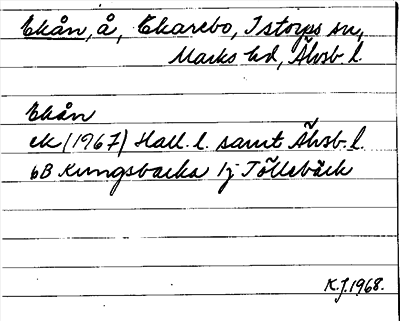 Ekån, å, Ekarebo, Istorps sn,
Marks hd, Älvsb. l.
Ekån
ek (1967) Hall. l. samt Älvsb. l.
6B Kungsbacka 1j Töllsbäck
K.J. 1968.